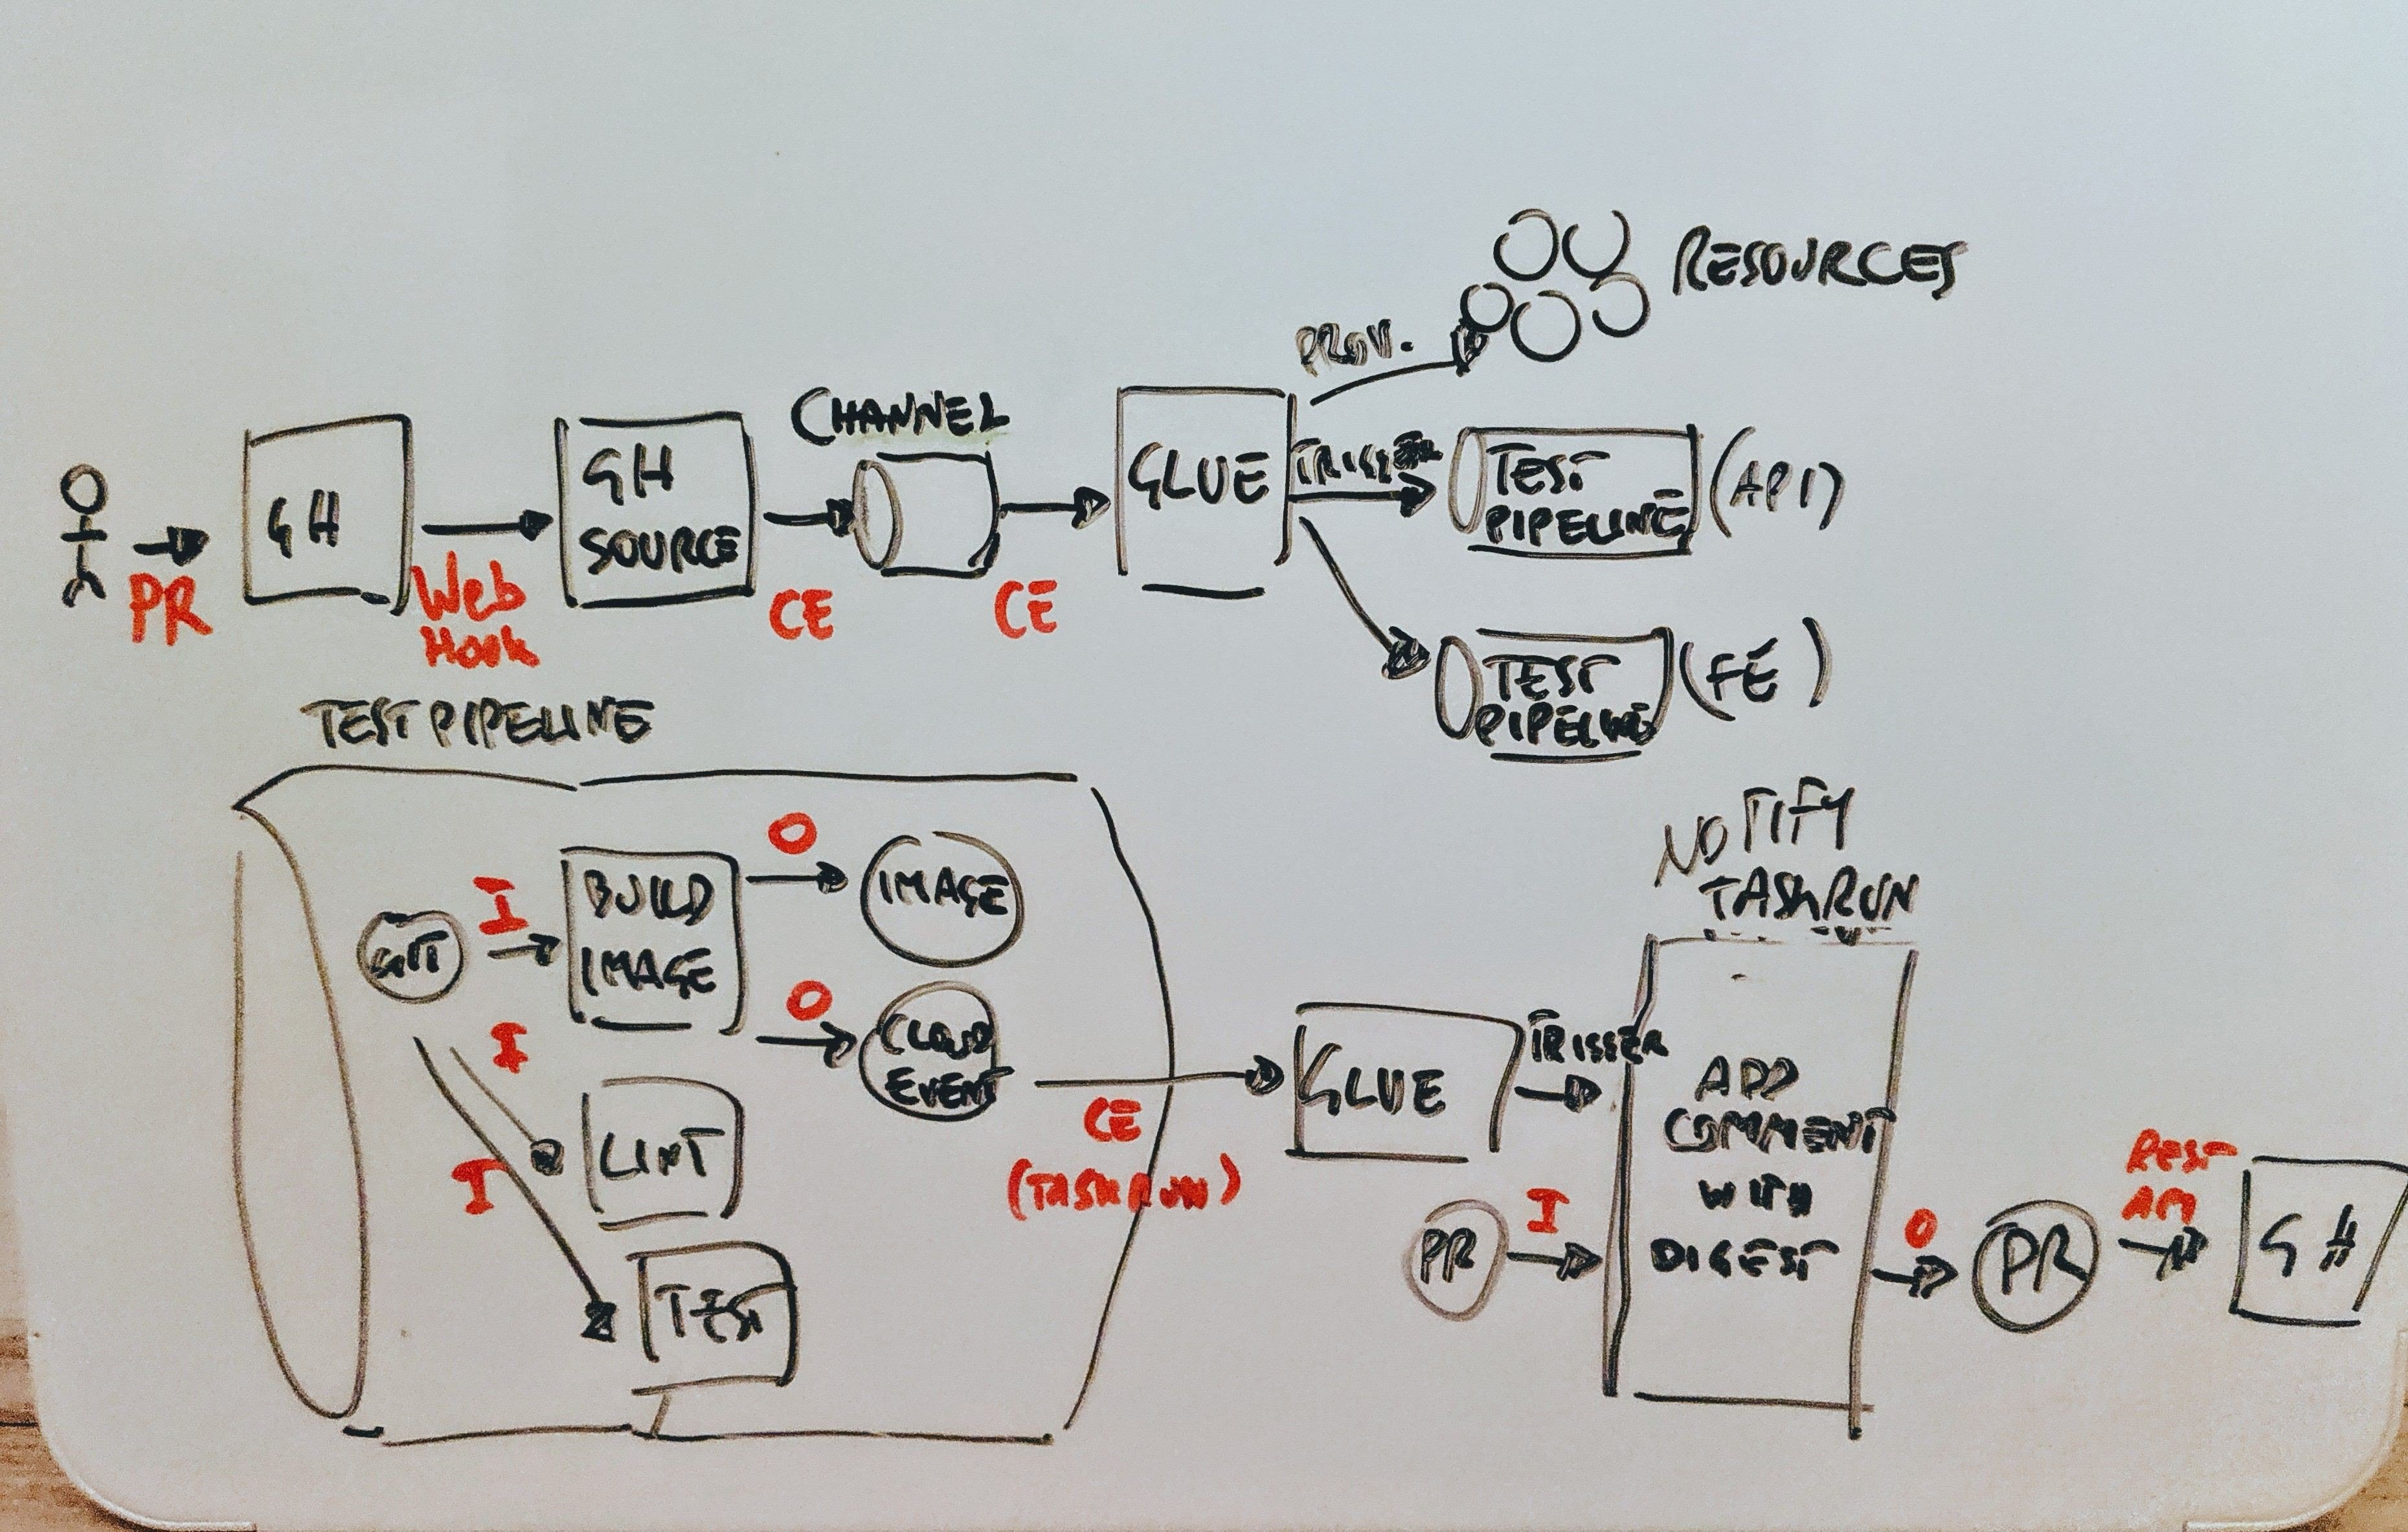 RESOURCES
PROV.
CHANNEL
GH
GH
SOURCE
GLUE
TRIGGER
TEST
PIPELINE
(API)
PR
Web
Hook
CE
CE
TEST
PIPELINE
(FE)
TEST PIPELINE
GIT
I
BUILD
IMAGE
O
IMAGE
O
CLOUD
EVENT
I
LINT
I
TEST
CE
(TASKRUN)
GLUE
TRIGGER
NOTIFY
TASKRUN
ADD
COMMENT
WITH
DIGEST
PR
I
O
PR
REST
API
GH